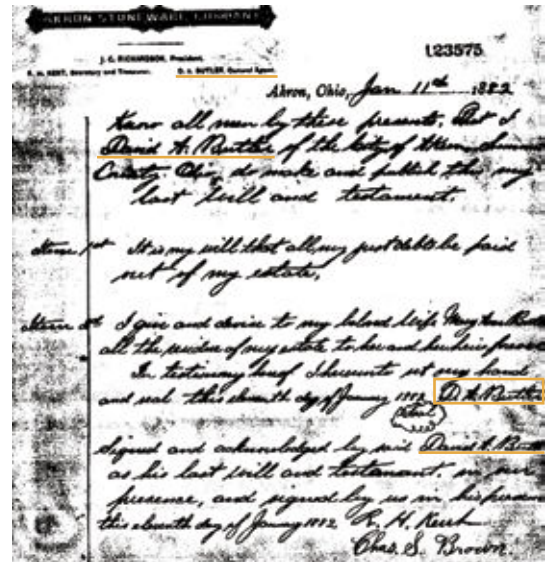 AKRON STONEWARE COMPANY
J. C. RICHARDSON, President.
R. H. KENT, Secretary and Treasurer. D. A. BUTLER, General Agent.
123575
Akron, Ohio, Jan 11th 1882
Know all men by these presents, that I
David A. Butler of the City of Akron, Summit
County Ohio, do make and publish this my
last will and testament.
Item 1st It is my will that all my just debts be paid
out of my estate.
Item 2d I give and devise to my beloved wife Mary Ann
all the residue of my estate to her and her heirs
In testimony hereof I hereunto set my hand
and seal this eleventh day of January 1882 D. A. Butler
Seal
Signed and acknowledged by said David A.
as his last will and testament in our
presence, and signed by us in his presence
this eleventh day of January 1882 R. H. Kent
Chas. S. Brown